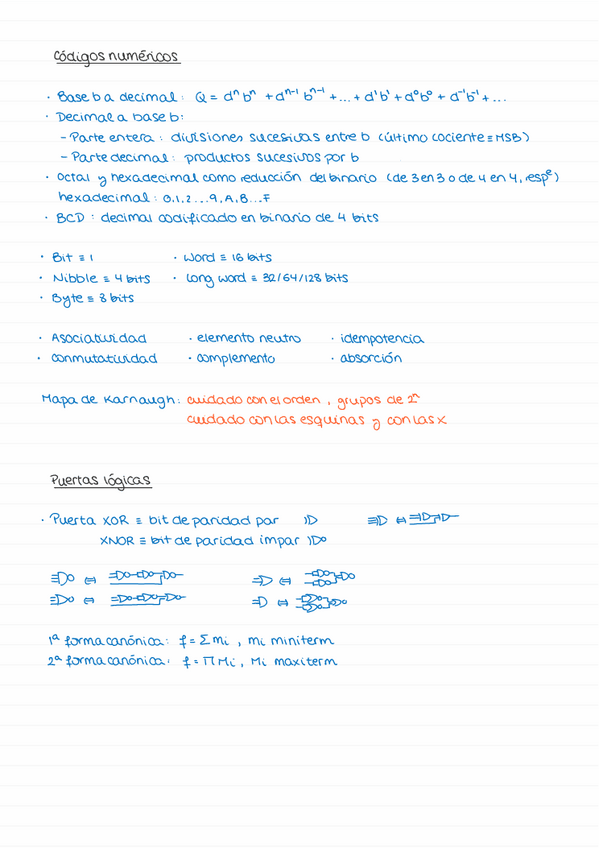 Códigos numéricos
· Base b a decimal: Q = dⁿbⁿ + dⁿ⁻¹bⁿ⁻¹ + ... + d¹b¹ + d⁰b⁰ + d⁻¹b⁻¹ + ...
· Decimal a base b:
- Parte entera: divisiones sucesivas entre b (último cociente ≡ MSB)
- Parte decimal: productos sucesivos por b
· octal y hexadecimal como reducción del binario (de 3 en 3 o de 4 en 4, respᵉ)
hexadecimal: 0,1,2...9,A,B...F
· BCD: decimal codificado en binario de 4 bits
· Bit ≡ 1 · Word ≡ 16 bits
· Nibble ≡ 4 bits · Long word ≡ 32/64/128 bits
· Byte ≡ 8 bits
· Asociatividad · elemento neutro · idempotencia
· conmutatividad · complemento · absorción
Mapa de Karnaugh: cuidado con el orden, grupos de 2ⁿ
cuidado con las esquinas y con las x
Puertas lógicas
· Puerta XOR ≡ bit de paridad par
XNOR ≡ bit de paridad impar
1ª forma canónica: f = Σ mi, mi miniterm
2ª forma canónica: f = Π Mi, Mi maxiterm